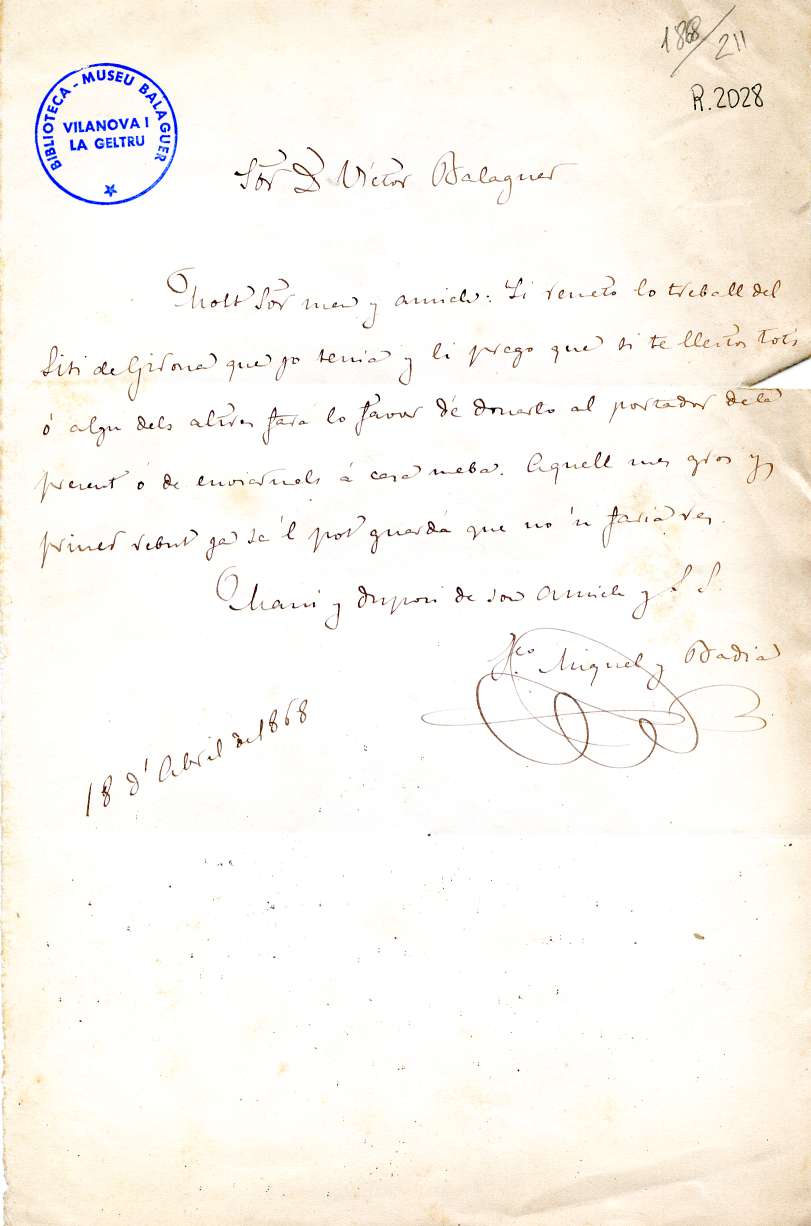 1868/211
R.2028
BIBLIOTECA - MUSEU BALAGUER
VILANOVA I
LA GELTRU
Sor D Víctor Balaguer
Molt Sor meu y amich: Li remeto lo treball del
Siti de Girona que jo tenia y li prego que si te llestos tots
ó algu dels altres fara lo favor de donarlo al portador de la
present ó de enviarmels á casa meba. Aquell mes gros y
primer rebut ja se'l pot guardá que no 'n faria res.
Mani y disposi de son amich y S. S.
Fco Miquel y Badia
18 d' Abril de 1868